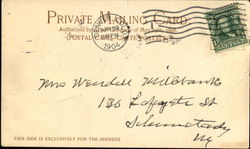 PRIVATE MAILING CARD
Authorized by
POSTAL CARD
1904
Mrs Wendell Millbanks
136 Lafayette St
Schenectady
Ny
THIS SIDE IS EXCLUSIVELY FOR THE ADDRESS